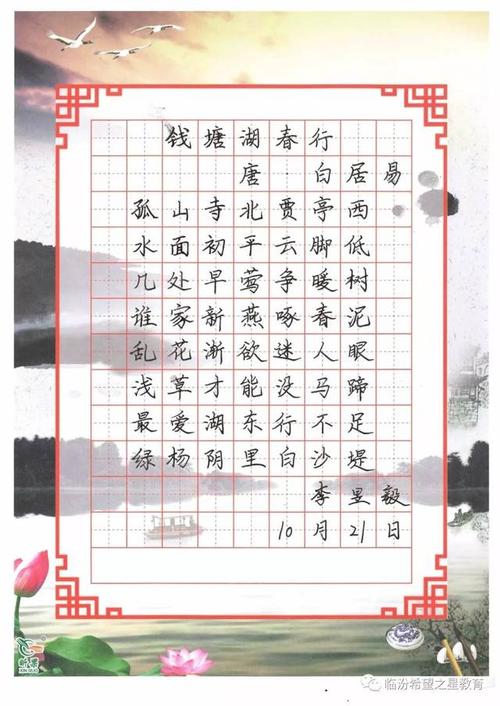 钱塘湖春行
唐 白居易
孤山寺北贾亭西
水面初平云脚低
几处早莺争暖树
谁家新燕啄春泥
乱花渐欲迷人眼
浅草才能没马蹄
最爱湖东行不足
绿杨阴里白沙堤
李昱毅
10月21日
临汾希望之星教育